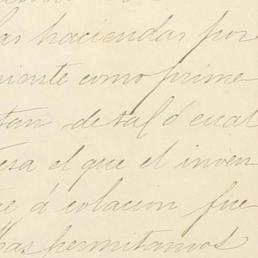 las haciendas por
niente como prime
tan de tal ó cual
esa el que el inven
ce á colacion fue
llas permitamos